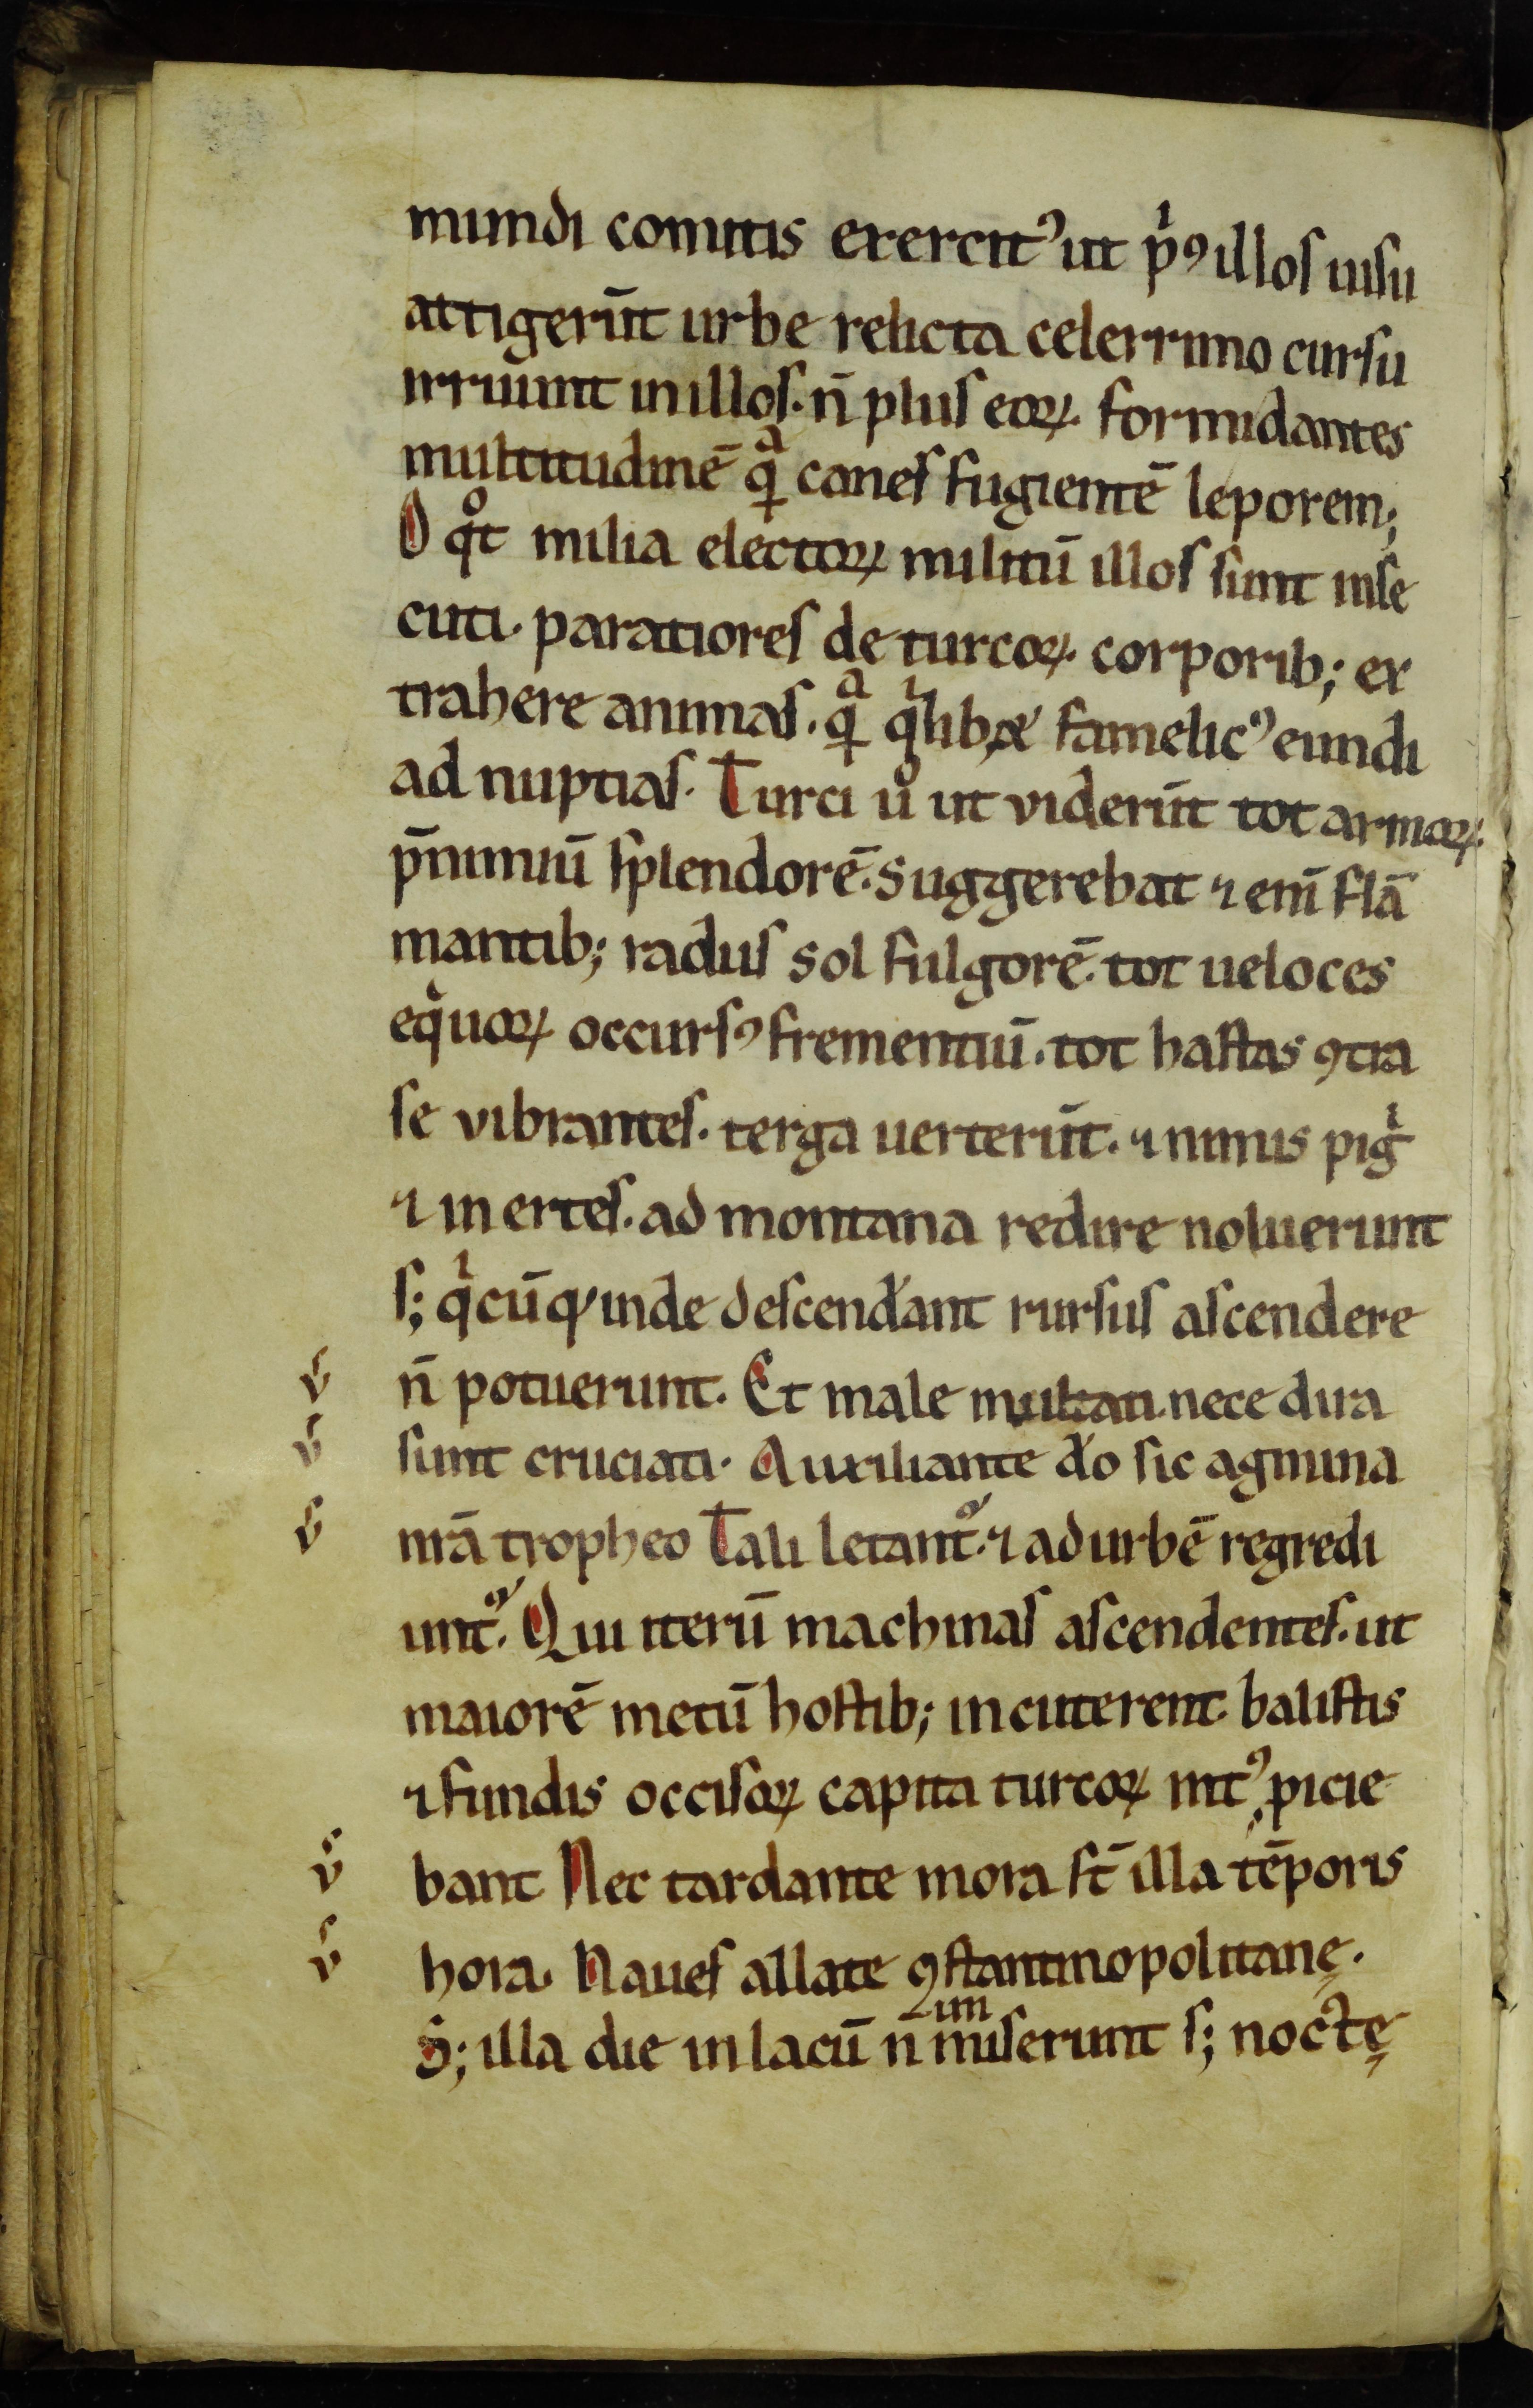 mundi comitis exercitꝰ ut pⁱꝰ illos uisu
attigerūt urbe relicta celerrimo cursu
irruunt in illos. n̄ plus eoꝝ. formidantes
multitudinē qᵃ canes fugientē leporem;
O qͦt milia electoꝝ militū illos sunt inse
cuti. paratiores de turcoꝝ. corporib; ex
trahere animas. qᵃ qⁱlibet famelicꝰ eundi
ad nuptias. Turci uͦ ut viderūt tot armoꝝ.
p̄nimiū splendorē. Suggerebat ⁊ eni̅ flā
mantib; radiis sol fulgorē. tot ueloces
eqͥuoꝝ occursꝰ frementiū. tot hastas ꝯtra
se vibrantes. terga uerterūt. ⁊ nimis pigⁱ
⁊ in ertes. ad montana redire noluerunt
s; qⁱcūq' inde descend'ant rursus ascendere
v̓ n̄ potuerunt. Et male multati. nece dira
v̓ sunt cruciati. Auxiliante d'o sic agmina
v̓ nrā tropheo Tali letant᷑. ⁊ ad urbē regredi
unt᷑. Qui iterū machinas ascendentes. ut
maiorē metū hostib; incuterent. balistis
⁊ fundis occisoꝝ capita turcoꝝ intꝰ ꝓicie
v̓ bant Nec tardante mora st̄ illa tēporis
v̓ hora. Naues allate ꝯstantinopolitanę.
S; illa die in lacū n̄ im miserunt s; noctę